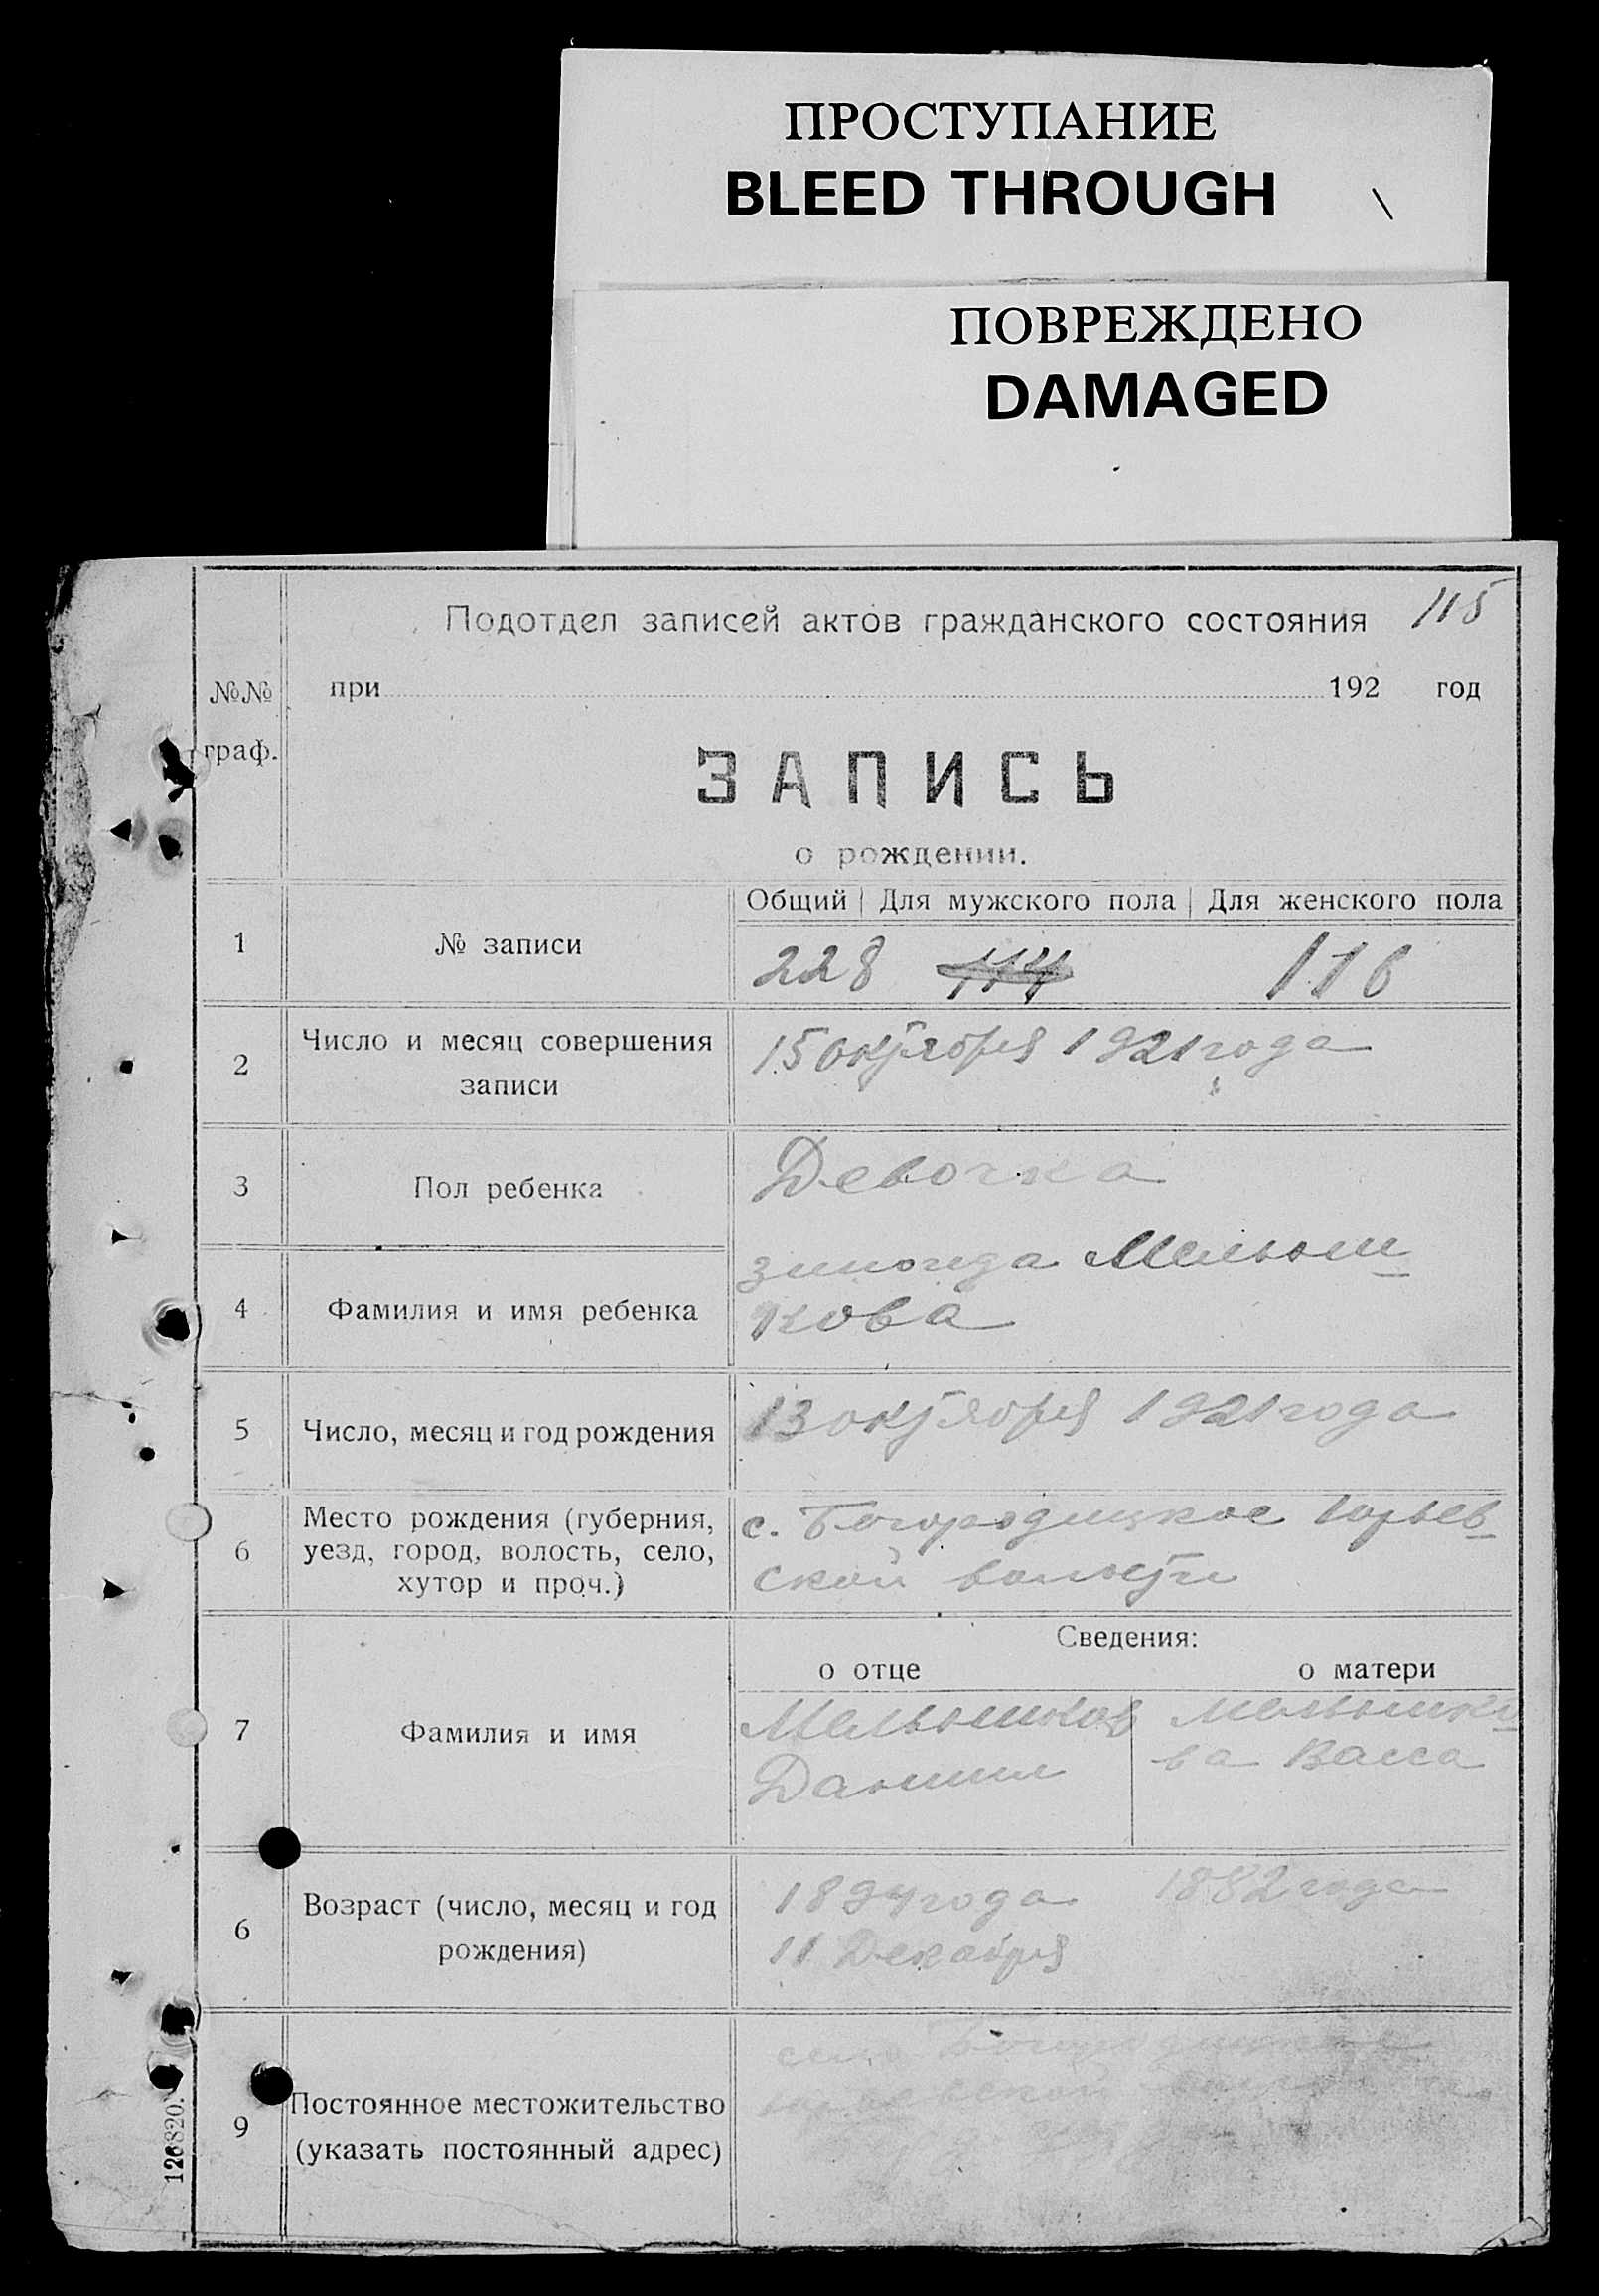 ПРОСТУПАНИЕ
BLEED THROUGH
ПОВРЕЖДЕНО
DAMAGED
115
Подотдел записей актов гражданского состояния
№№ при 192 год
граф.
ЗАПИСЬ
о рождении.
Общий Для мужского пола Для женского пола
1 № записи 228 114 116
2 Число и месяц совершения
записи
15 октября 1921 года
3 Пол ребенка Девочка
4 Фамилия и имя ребенка
кова
5 Число, месяц и год рождения 13 октября 1921 года
6 Место рождения (губерния,
уезд, город, волость, село,
хутор и проч.)
с. Богородицкое Юрьев-
ской волости
Сведения:
о отце о матери
7 Фамилия и имя
Даниил
ва Васса
6 Возраст (число, месяц и год
рождения)
1894 года 1882 года
11 Декабря
9 Постоянное местожительство
(указать постоянный адрес)
село Богородицкое
126820.